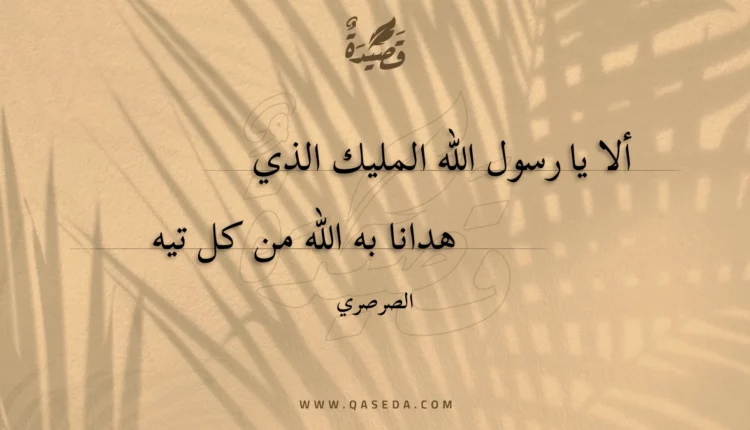 قَصِيْدَةٌ
ألا يا رسول الله المليك الذي
هدانا به الله من كل تيه
الصرصري
WWW.QASEDA.COM